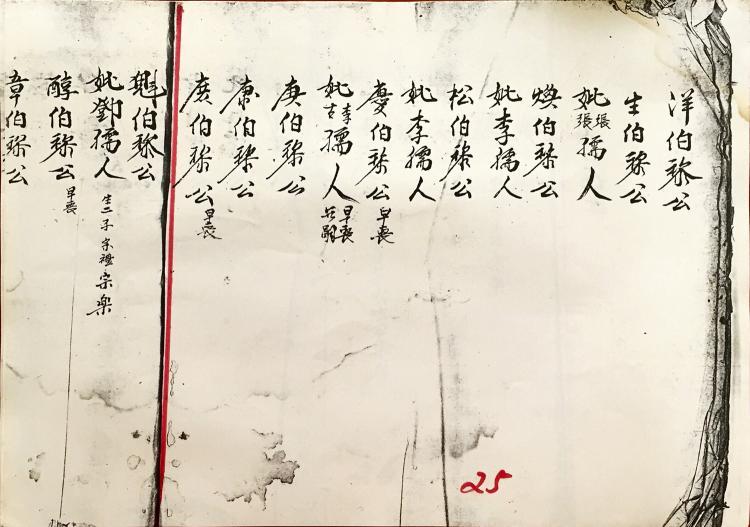 洋伯黎公
生伯黎公
妣張張孺人
煥伯黎公
妣李孺人
松伯黎公
妣李孺人
慶伯黎公 早喪
妣李古孺人 早喪 乏嗣
庚伯黎公
康伯黎公
庻伯黎公 早喪
魁伯黎公
妣鄧孺人 生二子 宗禮 宗楽
醇伯黎公 早喪
章伯黎公
25